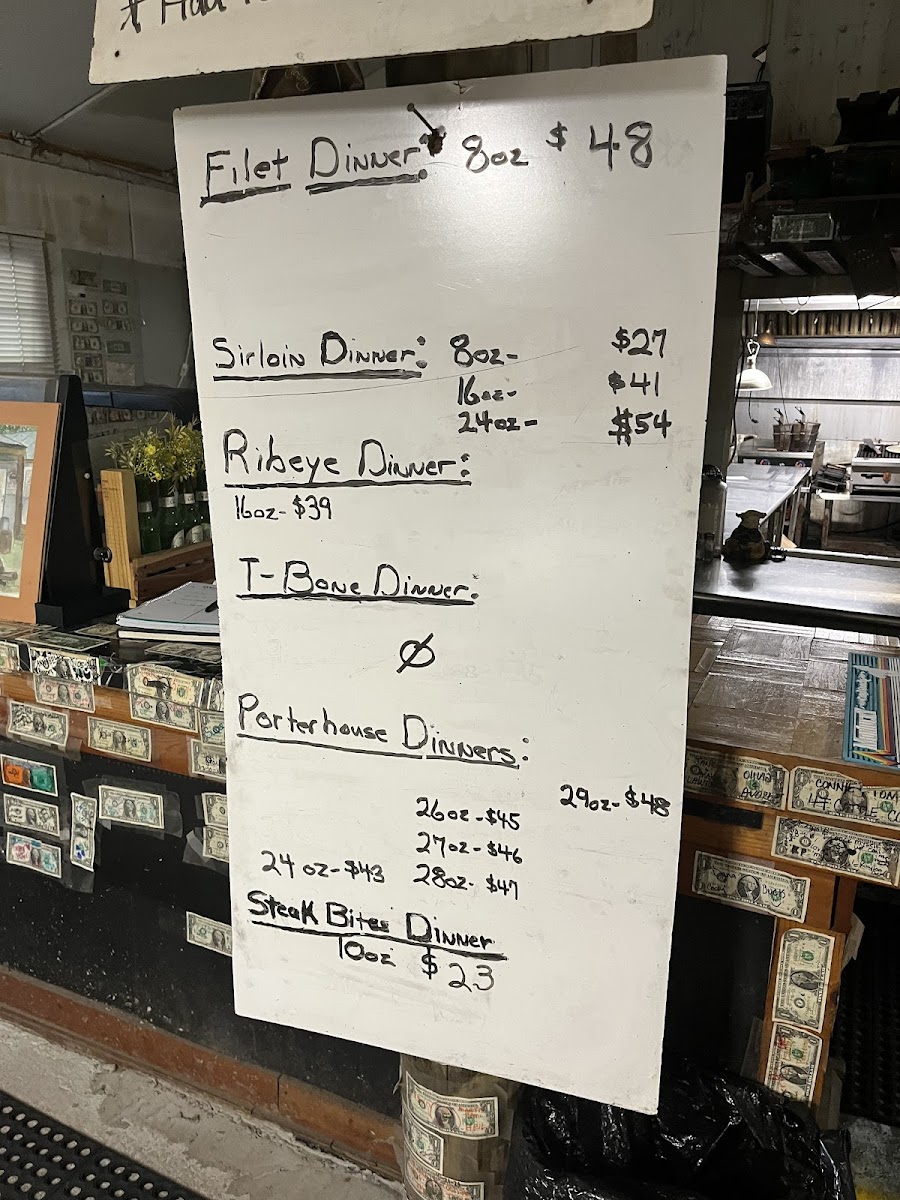 Filet Dinner: 8oz $48
Sirloin Dinner: 8oz- $27
16oz- $41
24oz- $54
Ribeye Dinner:
16oz- $39
T-Bone Dinner:
Ø
Porterhouse Dinners:
29oz- $48
26oz - $45
27oz - $46
24 oz- $43 28oz- $47
Steak Bites Dinner
10oz $23